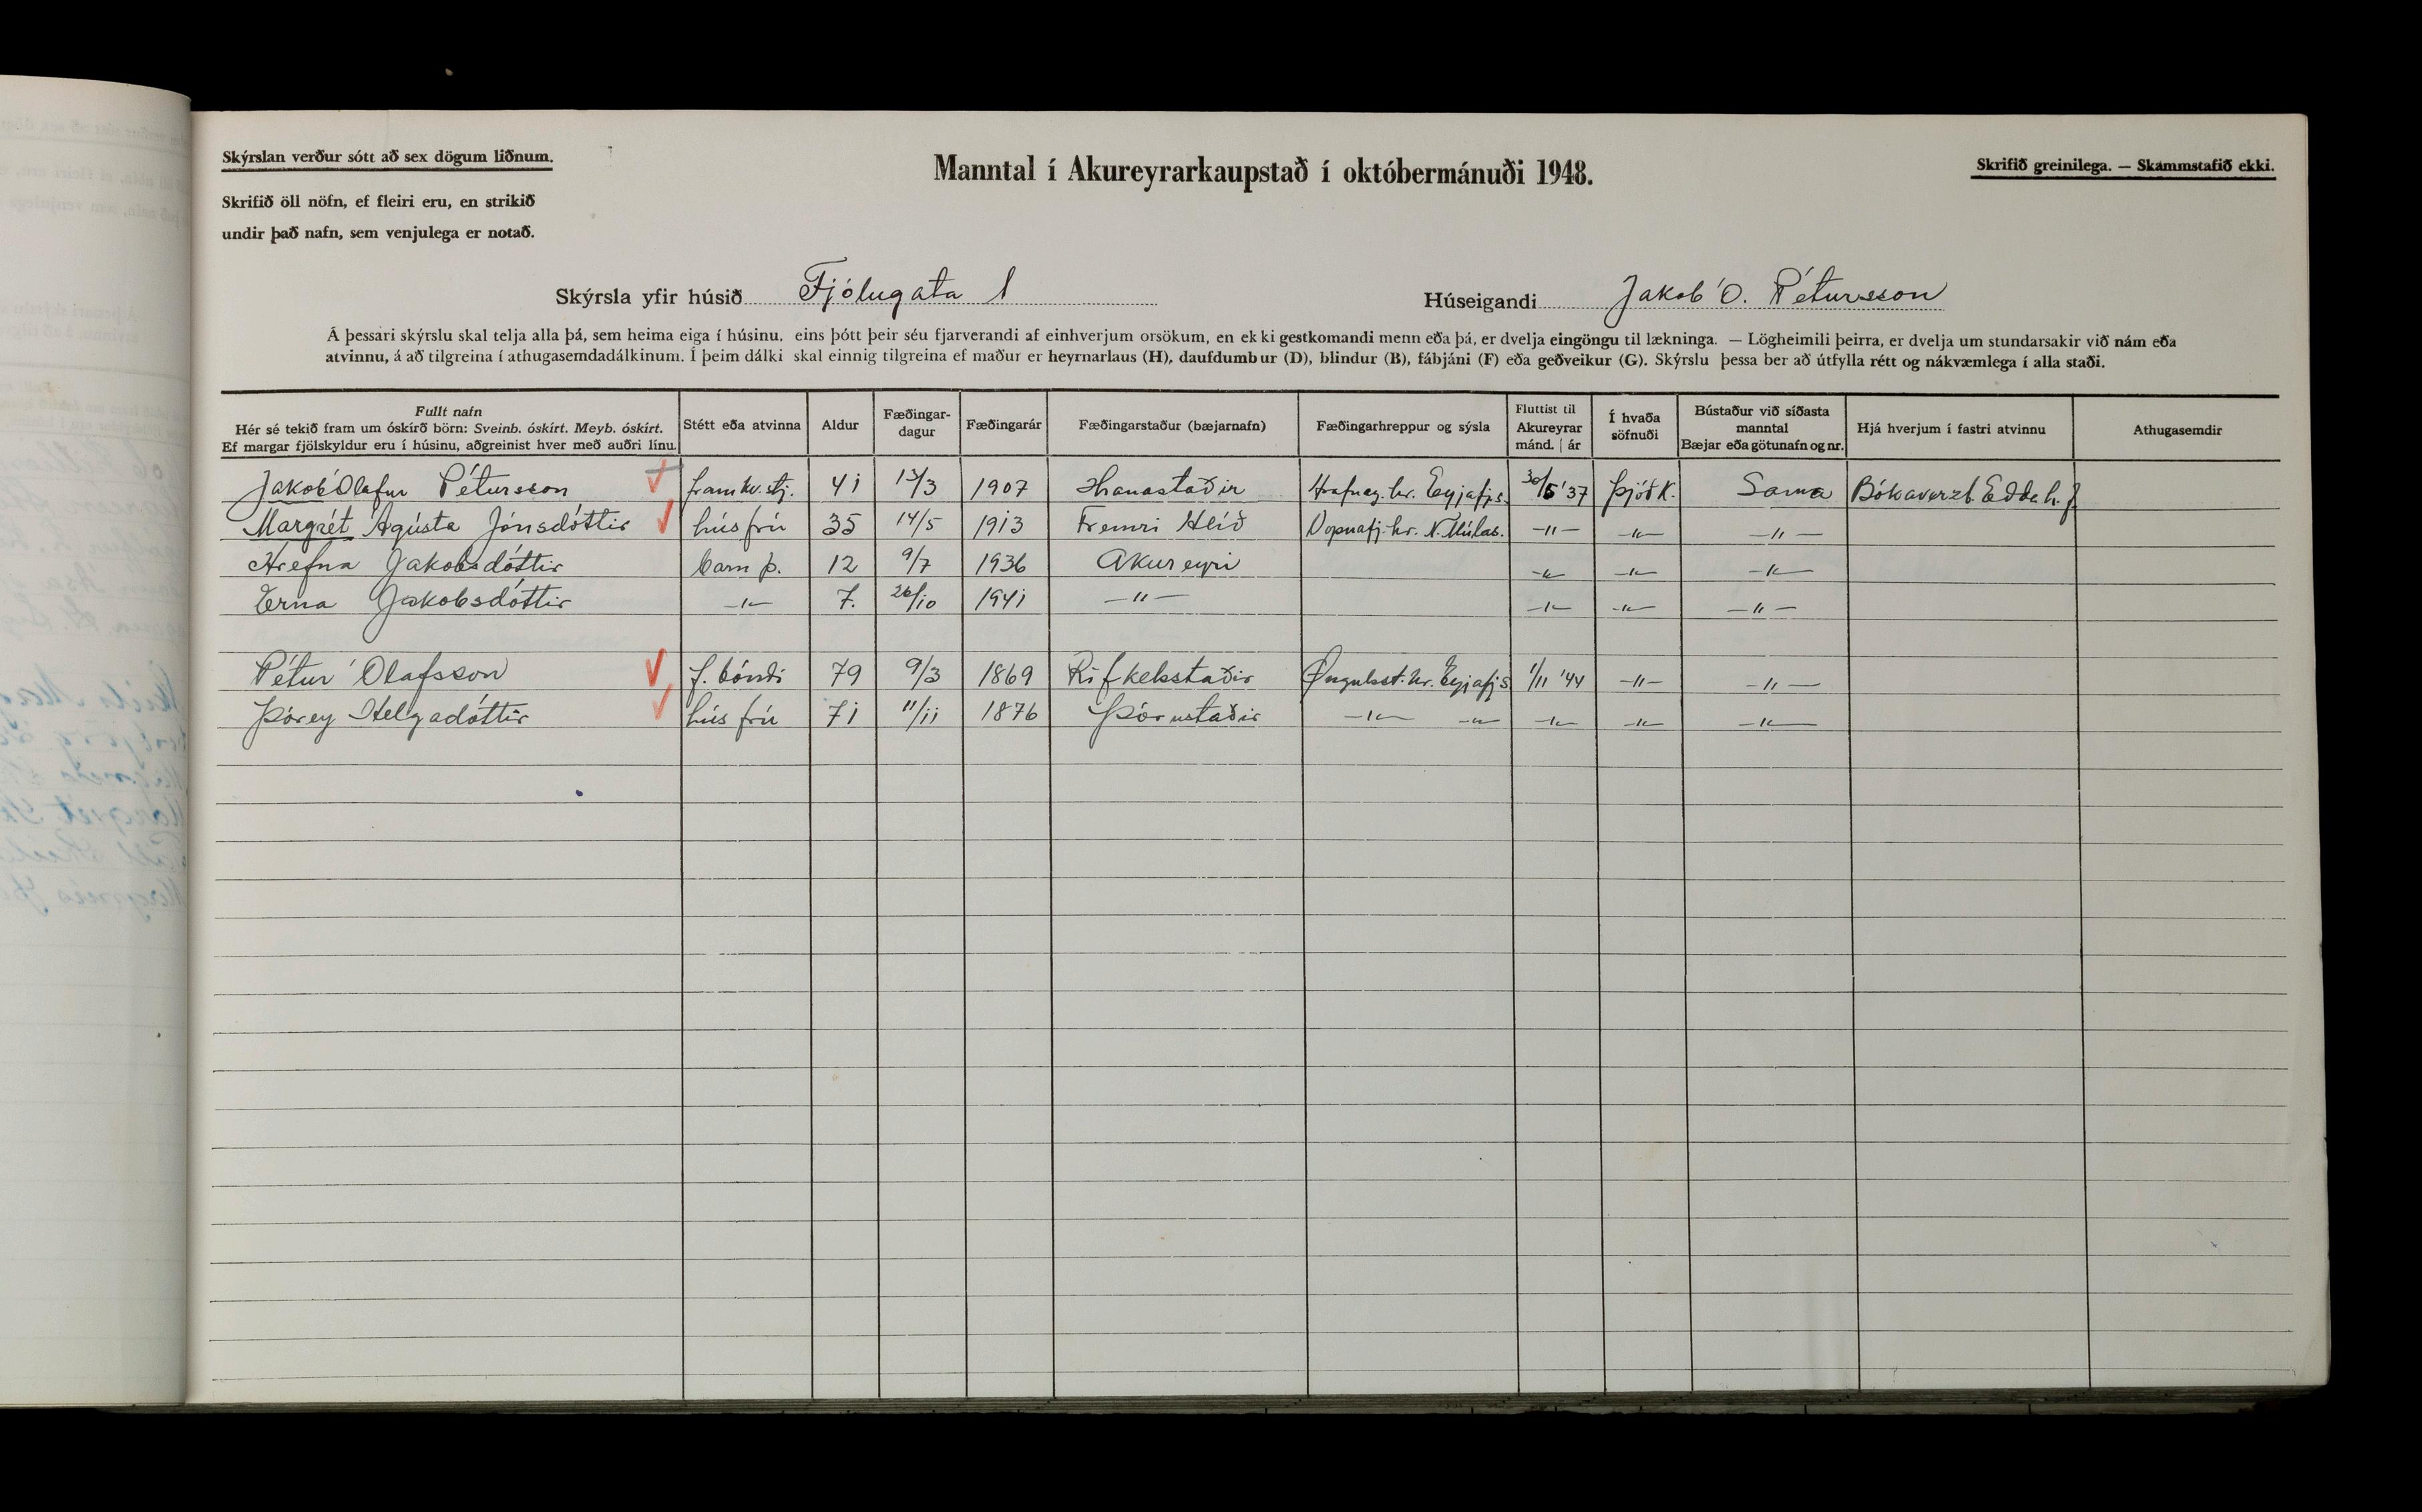 Skýrslan verður sótt að sex dögum liðnum.
Manntal í Akureyrarkaupstað í októbermánuði 1948.
Skrifið greinilega. — Skammstafið ekki.
Skrifið öll nöfn, ef fleiri eru, en strikið
undir það nafn, sem venjulega er notað.
Skýrsla yfir húsið Fjólugata 1
Húseigandi Jakob Ó. Pétursson
Á þessari skýrslu skal telja alla þá, sem heima eiga í húsinu, eins þótt þeir séu fjarverandi af einhverjum orsökum, en ekki gestkomandi menn eða þá, er dvelja eingöngu til lækninga. — Lögheimili þeirra, er dvelja um stundarsakir við nám eða
atvinnu, á að tilgreina í athugasemdadálkinum. Í þeim dálki skal einnig tilgreina ef maður er heyrnarlaus (H), daufdumbur (D), blindur (B), fábjáni (F) eða geðveikur (G). Skýrslu þessa ber að útfylla rétt og nákvæmlega í alla staði.
Fullt nafn
Hér sé tekið fram um óskírð börn: Sveinb. óskírt. Meyb. óskírt.
Ef margar fjölskyldur eru í húsinu, aðgreinist hver með auðri línu.
Stétt eða atvinna
Aldur
Fæðingar-
dagur
Fæðingarár
Fæðingarstaður (bæjarnafn)
Fæðingarhreppur og sýsla
Fluttist til
Akureyrar
mánd. | ár
Í hvaða
söfnuði
Bústaður við síðasta
manntal
Bæjar eða götunafn og nr.
Hjá hverjum í fastri atvinnu
Athugasemdir
Jakob Ólafur Pétursson framkv.stj. 41 /3 1907 Hranastaðir Hrafnag.hr. Eyjafjs. 30/5 '37 Þjóðk. Sama Bókaverzl. Edda h.f
Margrét Ágústa Jónsdóttir húsfrú 35 14/5 1913 Fremri Hlíð Vopnafj.hr. N.Múlas. —"— —"— —"—
Hrefna Jakobsdóttir barn þ. 12 9/7 1936 Akureyri —"— —"— —"—
Erna Jakobsdóttir —"— 7. 26/10 1941 —"— —"— —"— —"—
Pétur Ólafsson f. bóndi 79 9/3 1869 Rifkelsstaðir Öngulsst.hr. Eyjafjs 1/11 '44 —"— —"—
Þórey Helgadóttir húsfrú 71 11/11 1876 Þórustaðir —"— —"— —"— —"— —"—